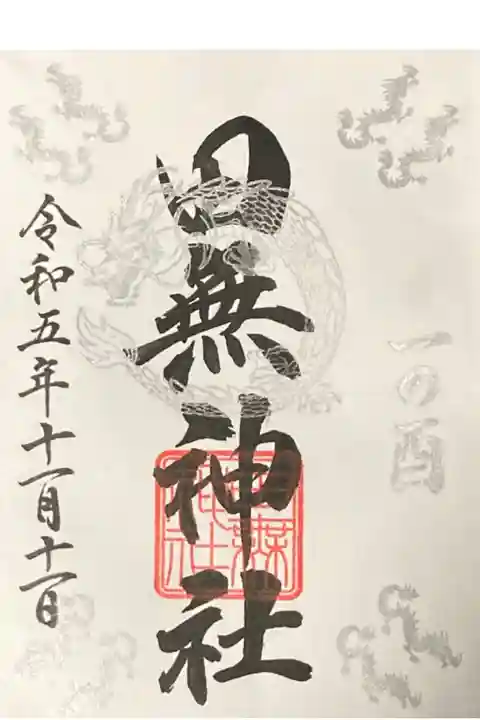 一の酉
田無神社
令和五年十一月十一日
田無神社